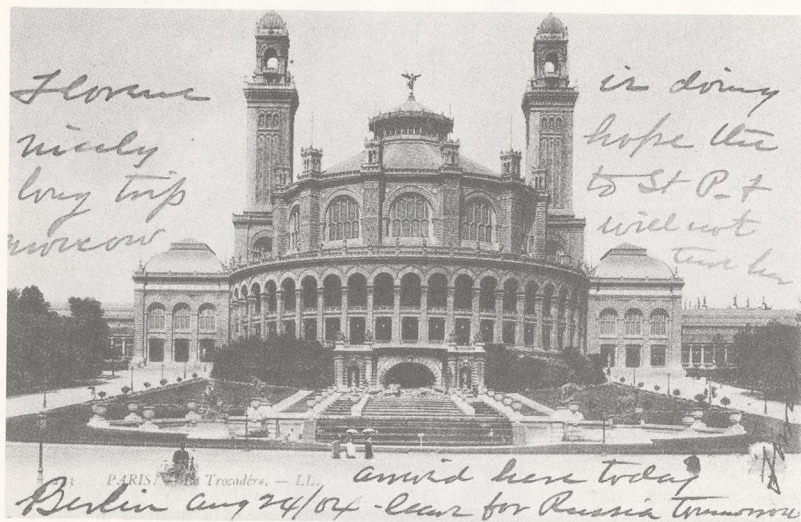 Florence is doing
nicely hope the
long trip to St P. &
moscow will not
her
PARIS. — Le Trocadéro. — LL.
arrived here today
Berlin Aug 24/04 - leave for Russia tomorrow